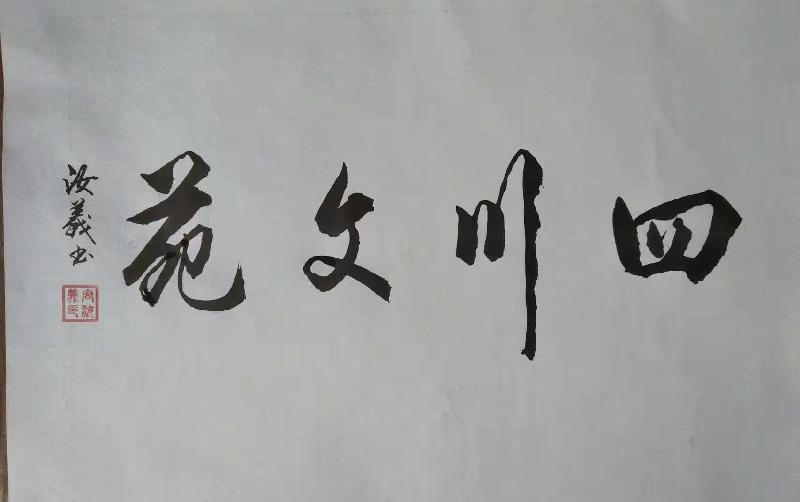 四川文苑
汝義书